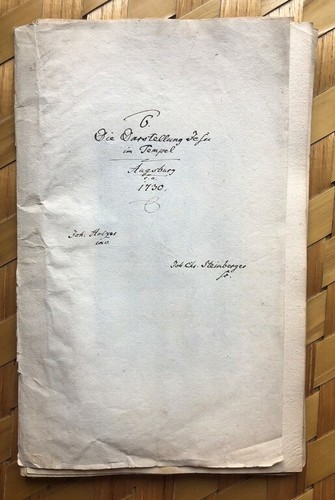 6.
Die Darstellung Jesu
im Tempel
Augsburg
c.a.
1730.
Joh. Holzer
inv.
Joh Chr. Steinberger
sc.